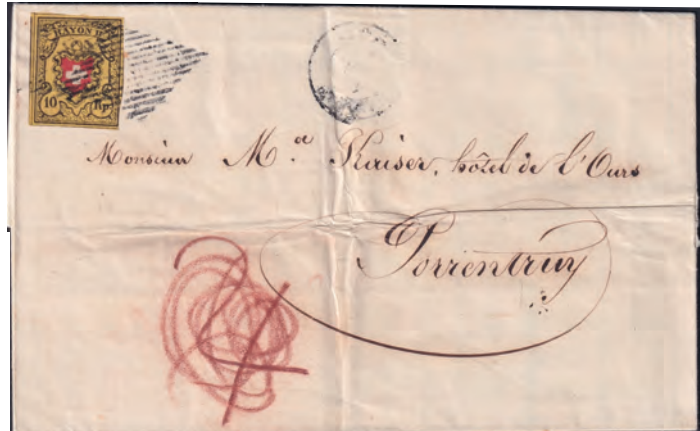 RAYON II
10 Rp.
Monsieur M.a Kaiser, hôtel de l'Ours
Porrentruy
4